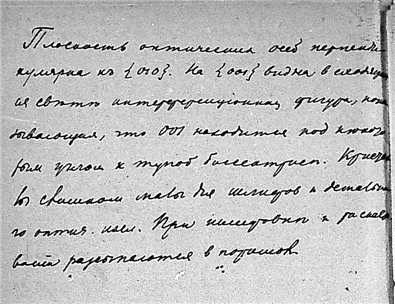 Плоскость оптических осей перпенди
кулярна къ {010}. На {001} видна в сходящем
ся свѣтѣ интерференціонная фигура, пока
зывающая, что 001 находится под некото
рым углом к тупой биссектрисѣ. Кристал
лы слишком малы для шлифов и детально
го оптич. изсл. При нагреваніи и раскалы
ваніи разсыпаются в порошок